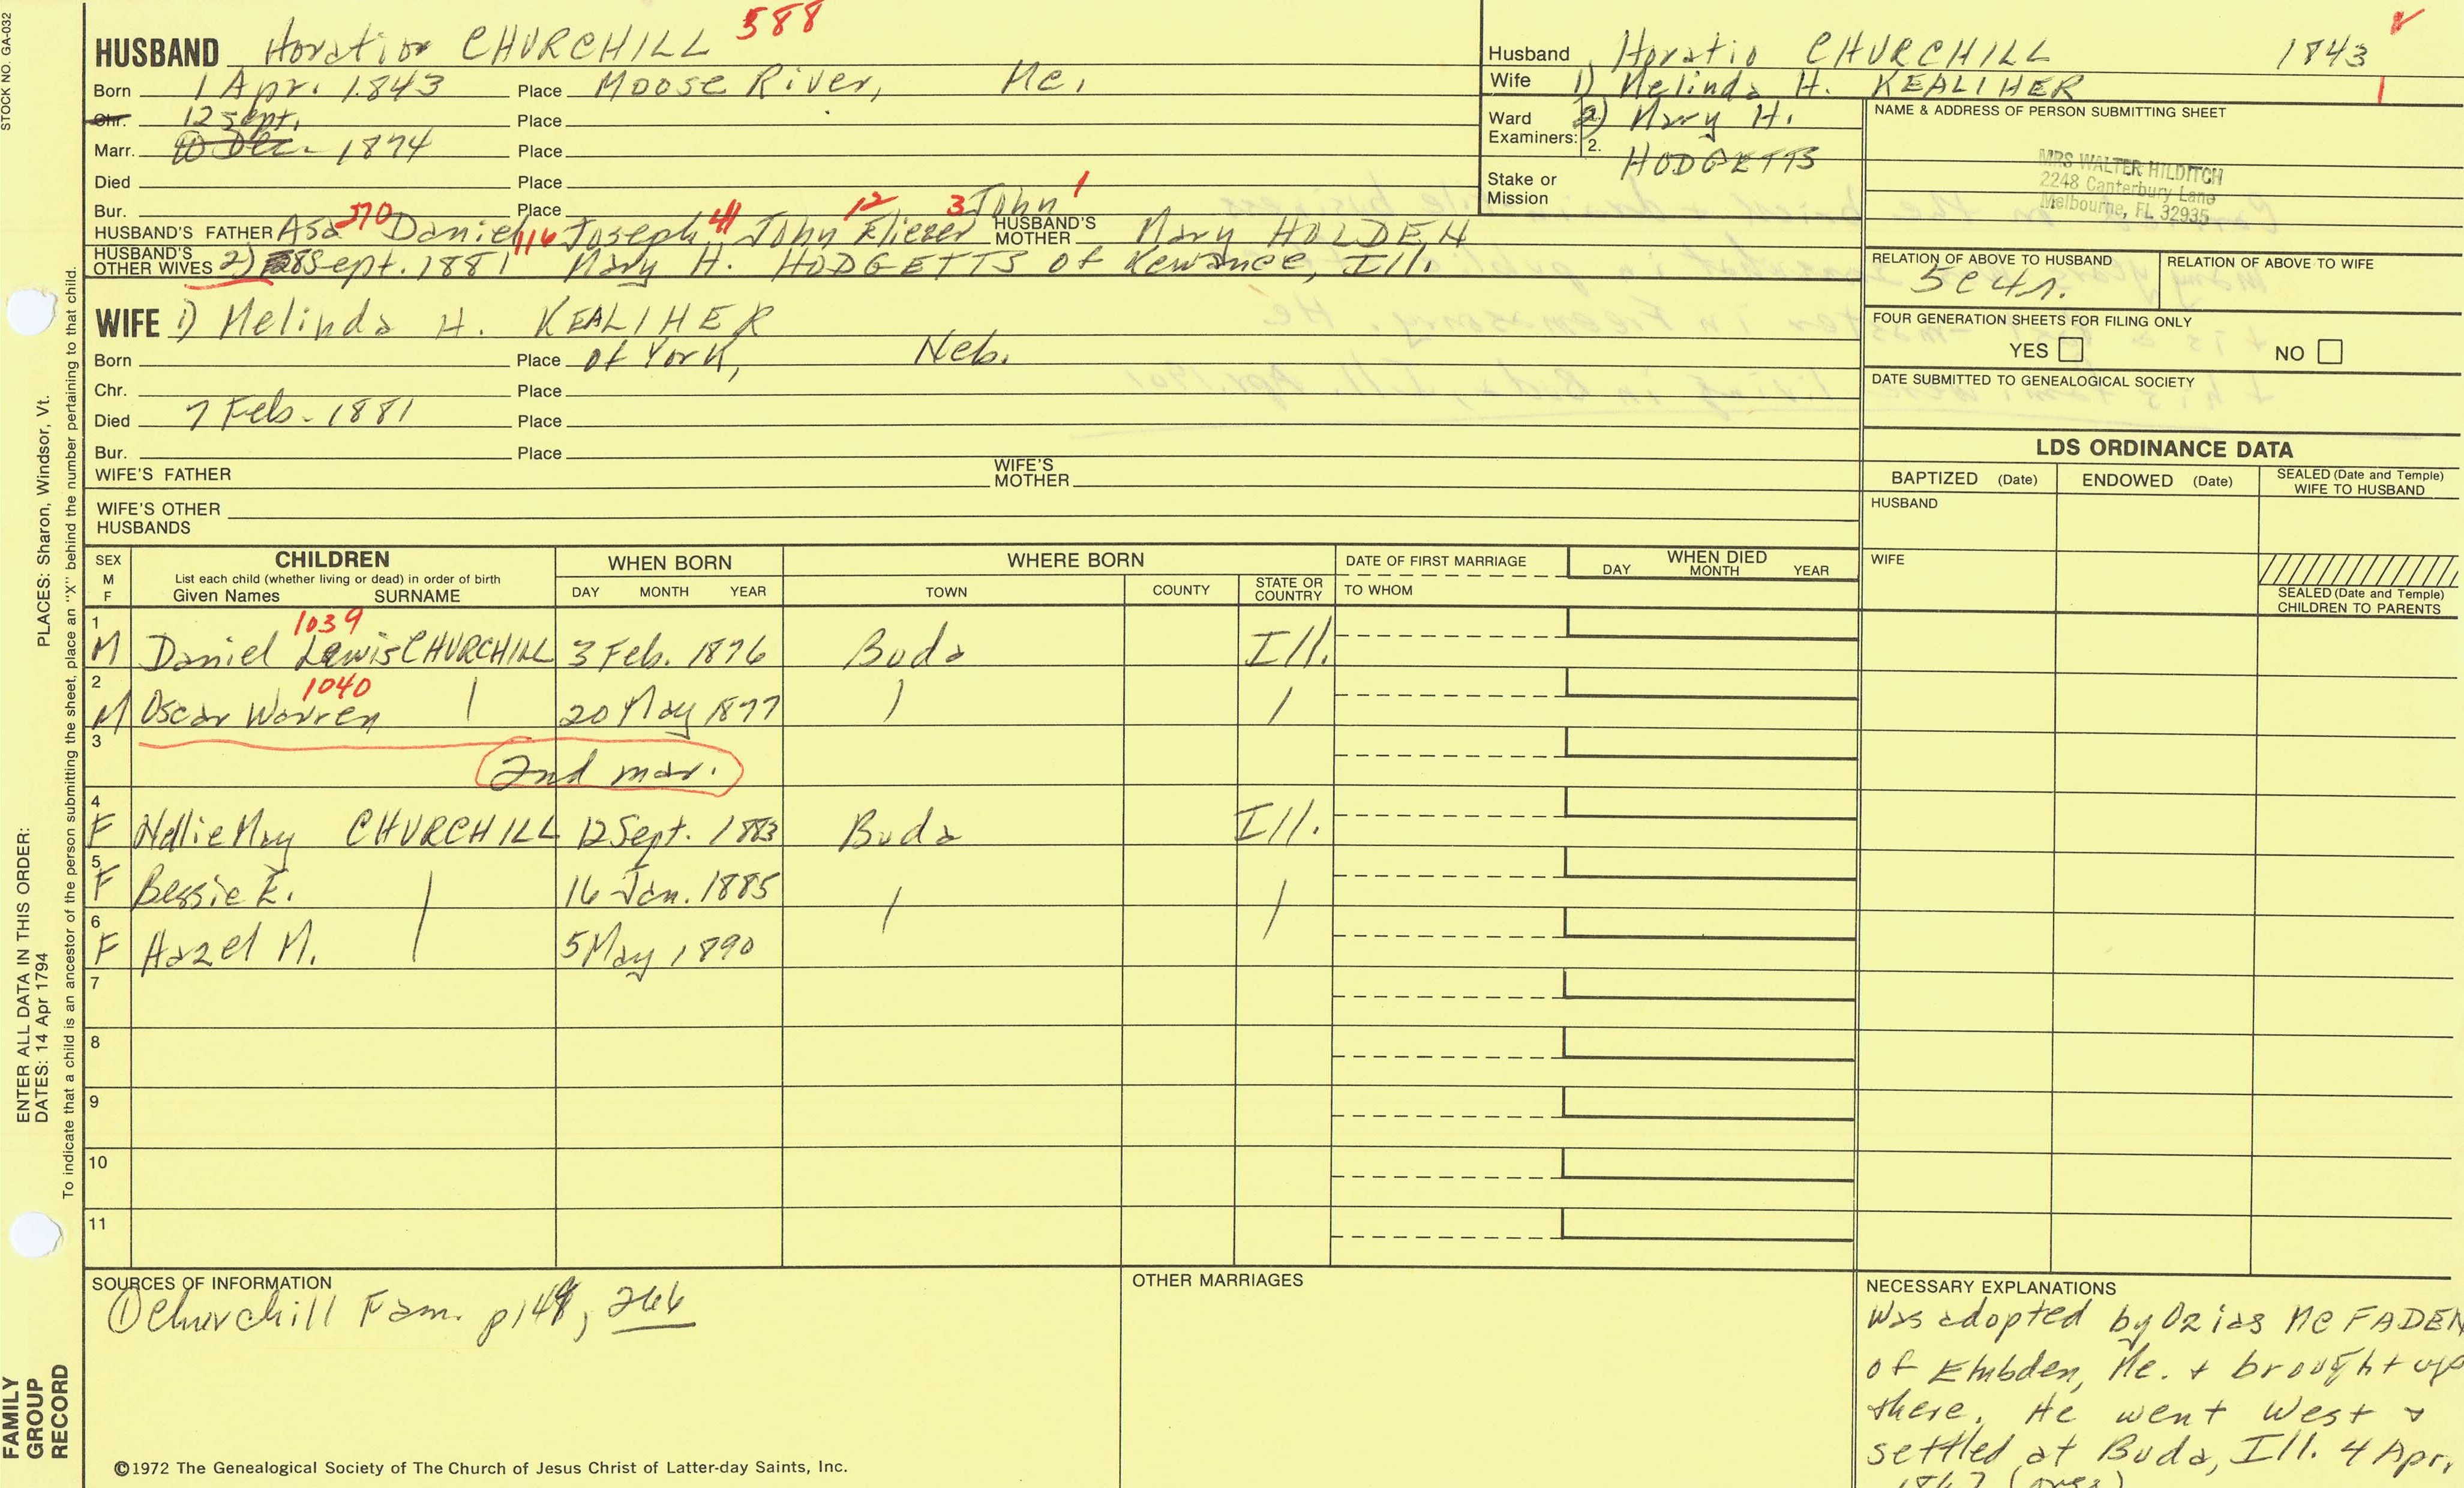 STOCK NO. GA-032
HUSBAND Horatior CHURCHILL 588
Born 1 Apr. 1843 Place Moose River, Me.
Chr. 12 Sept. Place
Marr. 10 Dec. 1874 Place
Died Place
Bur. Place
HUSBAND'S FATHER Asa 270 Daniel 116 Joseph 41 John 12 Eliezer 3 John 1 HUSBAND'S MOTHER Mary HOLDEN
HUSBAND'S OTHER WIVES 2) 28 Sept. 1881 Mary H. HODGETTS of Kewanee, Ill.
WIFE 1) Melinda H. KEALIHER
Born Place of York, Neb.
Chr. Place
Died 7 Feb. 1881 Place
Bur. Place
WIFE'S FATHER WIFE'S MOTHER
WIFE'S OTHER HUSBANDS
Husband Horatio CHURCHILL 1843
Wife 1) Melinda H. KEALIHER 1
Ward 2) Mary H.
Examiners: 2. HODGETTS
Stake or Mission
NAME & ADDRESS OF PERSON SUBMITTING SHEET
MRS WALTER HILDITCH
2248 Canterbury Lane
Melbourne, FL 32935
RELATION OF ABOVE TO HUSBAND RELATION OF ABOVE TO WIFE
5c4r.
FOUR GENERATION SHEETS FOR FILING ONLY
YES NO
DATE SUBMITTED TO GENEALOGICAL SOCIETY
LDS ORDINANCE DATA
BAPTIZED (Date) ENDOWED (Date) SEALED (Date and Temple) WIFE TO HUSBAND
HUSBAND
WIFE
SEALED (Date and Temple) CHILDREN TO PARENTS
SEX M F CHILDREN WHEN BORN WHERE BORN DATE OF FIRST MARRIAGE WHEN DIED
List each child (whether living or dead) in order of birth
Given Names SURNAME DAY MONTH YEAR TOWN COUNTY STATE OR COUNTRY TO WHOM DAY MONTH YEAR
1 M Daniel Lewis CHURCHILL 1039 3 Feb. 1876 Buda Ill.
2 M Oscar Warren 1040 20 May 1877
3 2nd mar.
4 F Nellie May CHURCHILL 12 Sept. 1883 Buda Ill.
5 F Bessie E. 16 Jan. 1885
6 F Hazel M. 5 May 1890
7
8
9
10
11
SOURCES OF INFORMATION
① Churchill Fam. p 148, 266
OTHER MARRIAGES
NECESSARY EXPLANATIONS
Was adopted by Ozias McFADEN
of Embden, Me. + brought up
there. He went West +
settled at Buda, Ill. 4 Apr.
1867
©1972 The Genealogical Society of The Church of Jesus Christ of Latter-day Saints, Inc.
FAMILY GROUP RECORD
ENTER ALL DATA IN THIS ORDER:
DATES: 14 Apr 1794
PLACES: Sharon, Windsor, Vt.
To indicate that a child is an ancestor of the person submitting the sheet, place an "X" behind the number pertaining to that child.